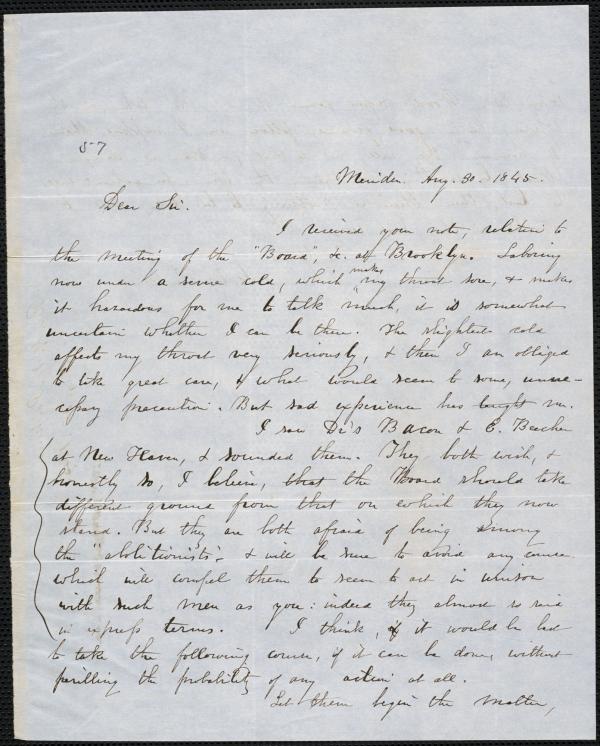 57
Meriden Aug. 30. 1845.
Dear Sir.
I received your note, relative to
the meeting of the "Board", &c. at Brooklyn. Laboring
now under a severe cold, which makes my throat sore, & makes
it hazardous for me to talk much, it is somewhat
uncertain whether I can be there. The slightest cold
affects my throat very seriously, & then I am obliged
to take great care, & what would seem to some, unne-
cessary precaution. But sad experience has taught me.
I saw Dr's Bacon & E. Beecher
at New Haven, & sounded them. They both wish, &
honestly so, I believe, that the Board should take
different ground from that on which they now
stand. But they are both afraid of being among
the "abolitionists"- & will be sure to avoid any course
which will compel them to seem to act in unison
with such men as you: indeed they almost so said
in express terms. I think, it would be best
to take the following course, if it can be done, without
perilling the probability of any action at all.
Let them begin the matter,